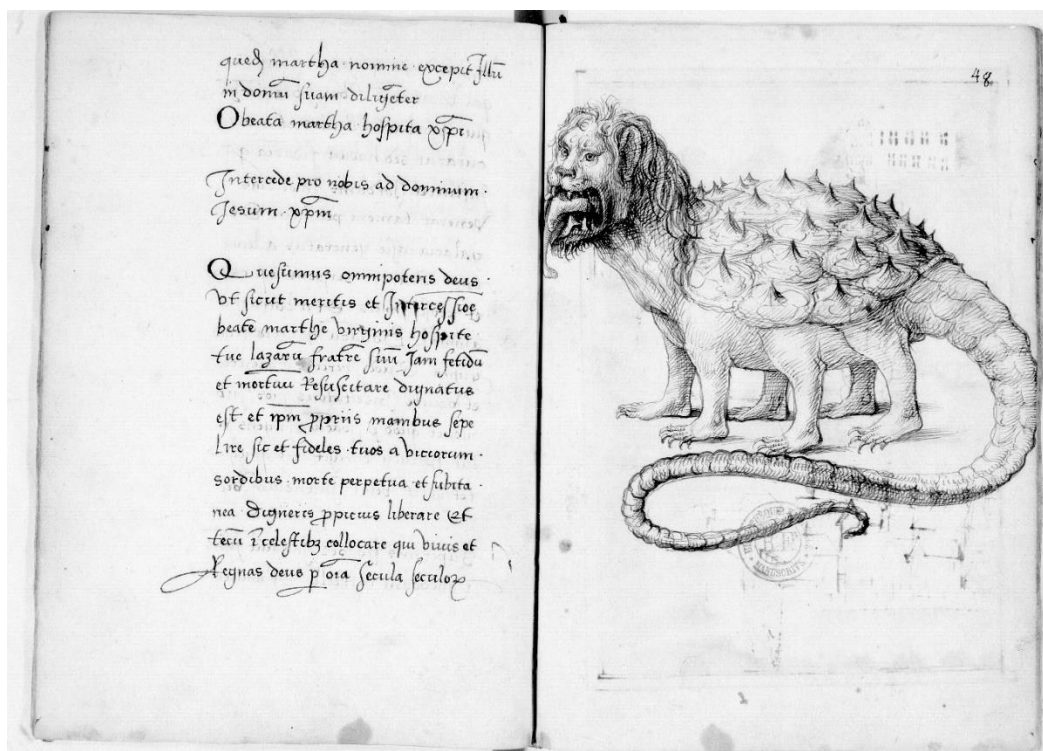 quedã martha nomine excepit Illũ
in domũ suam diligẽter
O beata martha hospita xp̃i
Intercede pro nobis ad dominum.
Jesum. xp̃m
Quesumus omnipotens deus.
vt sicut meritis et Intercessiõe
beate marthe virginis hospite
tue lazarũ fratrẽ suũ Jam fetidũ
et mortuũ Resuscitare dignatus
est et ip̃m p̱priis manibus sepe
lire sic et fideles tuos a viciorum.
sordibus morte perpetua et subita.
nea digneris p̱picius liberare Et
tecũ ĩ celestibꝫ collocare qui viuis et
Regnas deus p̱ oĩa secula seculoꝝ
48
MANUSCRITS